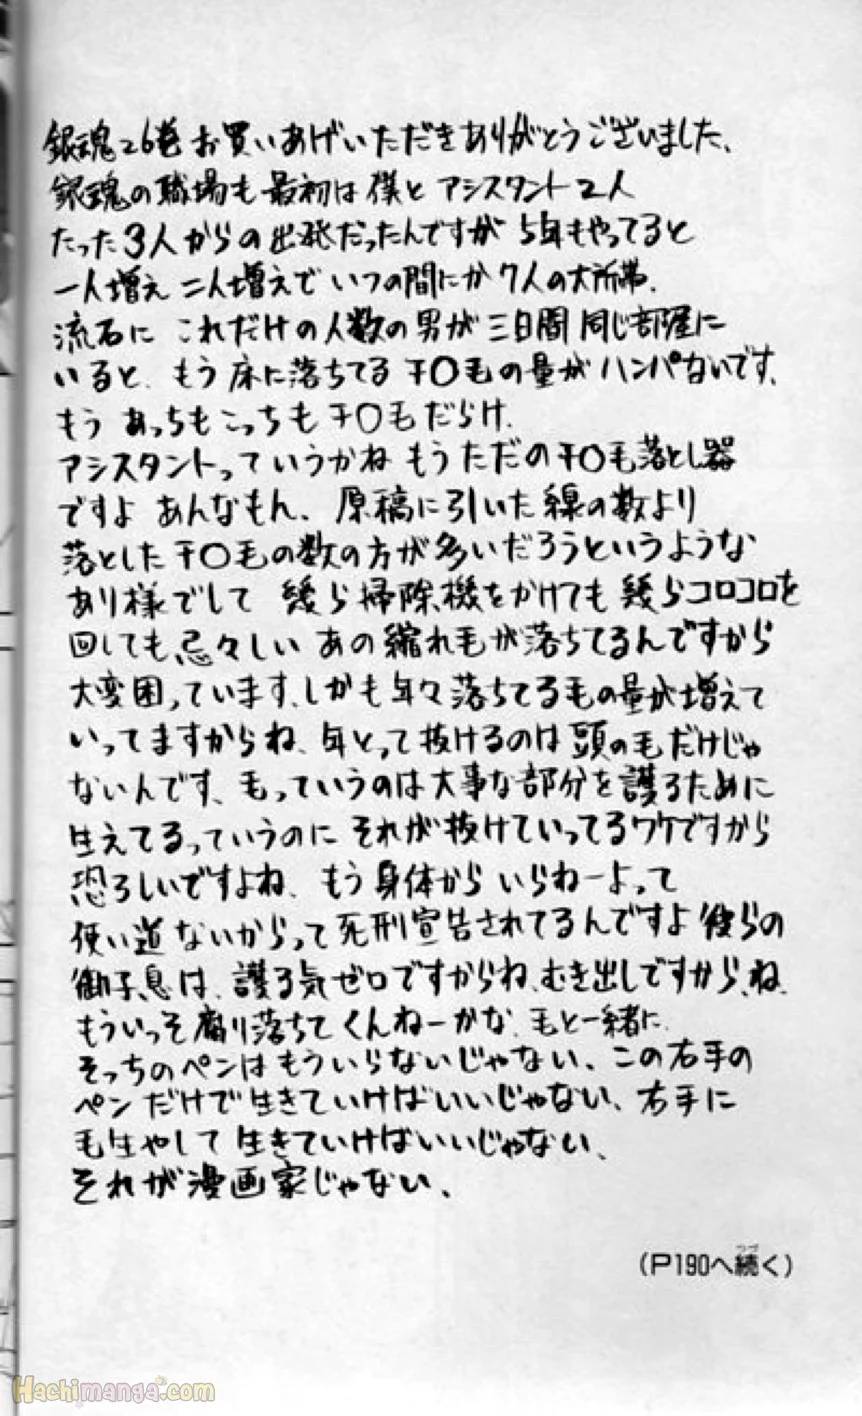 銀魂26巻 お買いあげいただきありがとうございました、
銀魂の職場も最初は僕とアシスタント2人
たった3人からの出発だったんですが 5年もやってると
一人増え 二人増えで いつの間にか 7人の大所帯.
流石に これだけの人数の男が 三日間 同じ部屋に
いると、もう床に落ちてるチ〇毛の量がハンパないです、
もう あっちもこっちもチ〇毛だらけ.
アシスタントっていうかね もう ただのチ〇毛落とし器
ですよ あんなもん、 原稿に引いた線の数より
落としたチ〇毛の数の方が多いだろうというような
あり様でして 幾ら掃除機をかけても 幾らコロコロを
回しても 忌々しい あの縮れ毛が落ちてるんですから
大変困っています、しかも年々落ちてる毛の量が増えて
いってますからね、年とって抜けるのは頭の毛だけじゃ
ないんです、毛っていうのは大事な部分を護るために
生えてるっていうのに それが抜けていってるワケですから
恐ろしいですよね、 もう身体から いらねーよって
使い道ないからって死刑宣告されてるんですよ 彼らの
御子息は、護る気ゼロですからね、むき出しですから、ね、
もういっそ腐り落ちてくんねーかな、毛と一緒に.
そっちのペンはもういらないじゃない、この右手の
ペンだけで生きていけばいいじゃない、右手に
毛生やして生きていけばいいじゃない、
それが漫画家じゃない、
(P190へ続く)
つづ
Hachimanga.com